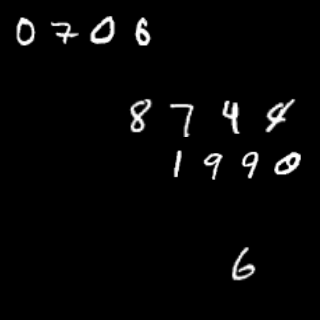 0 7 0 6
8 7 4 4
1 9 9 0
6